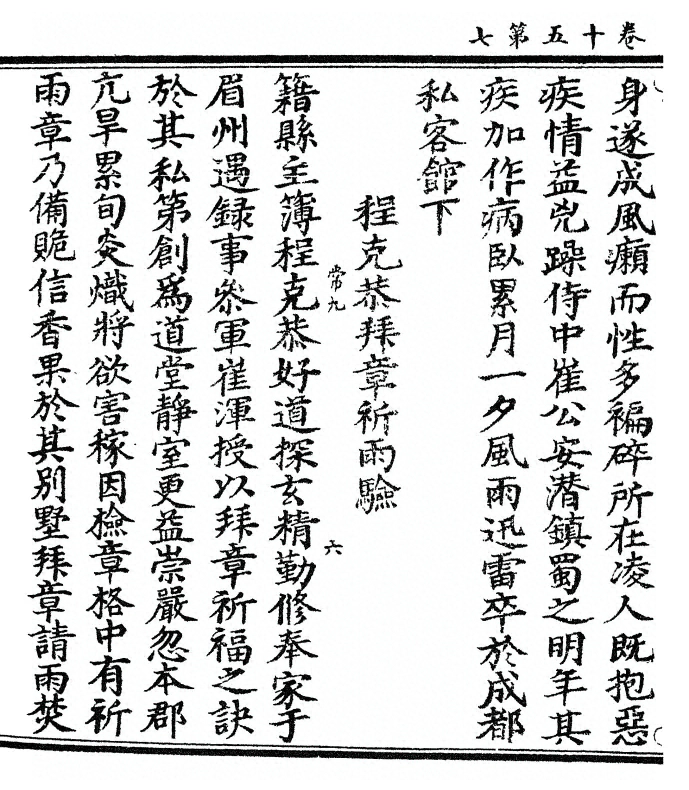 卷十五第七
身遂成風癩而性多褊碎所在凌人既抱惡
疾情益兇躁侍中崔公安潛鎮蜀之明年其
疾加作病臥累月一夕風雨迅雷卒於成都
私客館下
程克恭拜章祈雨驗
常九
籍縣主簿程克恭好道探玄精勤修奉家于
六
眉州遇録事叅軍崔渾授以拜章祈福之訣
於其私第創爲道堂靜室更益崇嚴忽本郡
亢旱累旬炎熾將欲害稼因檢章格中有祈
雨章乃備贍信香果於其別墅拜章請雨焚